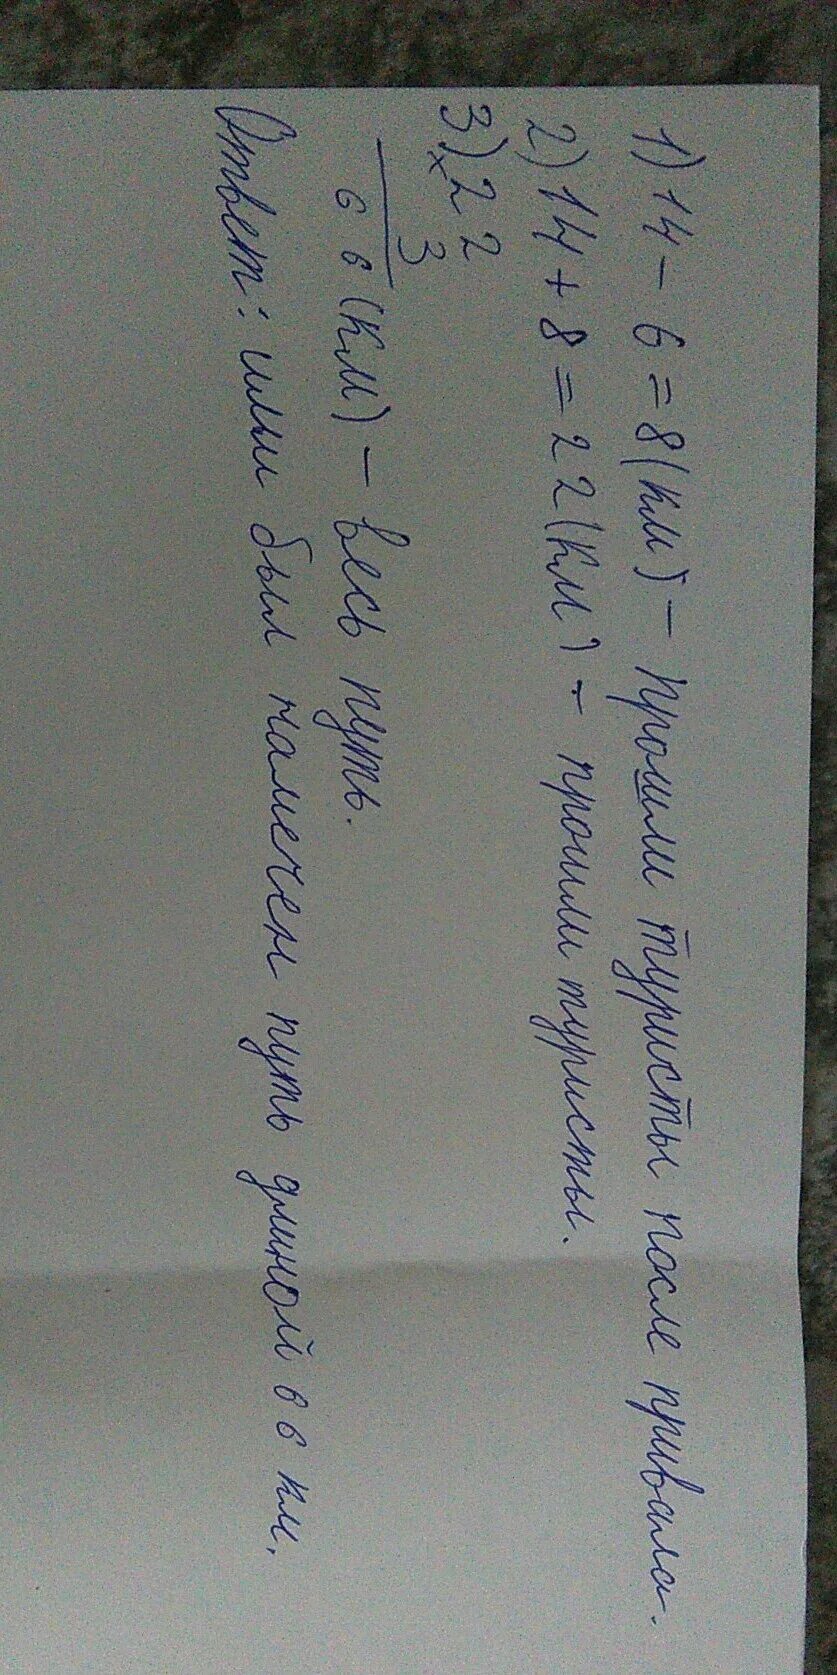 1) 14 - 6 = 8 (км) - прошли туристы после привала.
2) 14 + 8 = 22 (км) - прошли туристы.
3) × 22
3
66 (км) - весь путь.
Ответ: ими был намечен путь длиной 66 км.